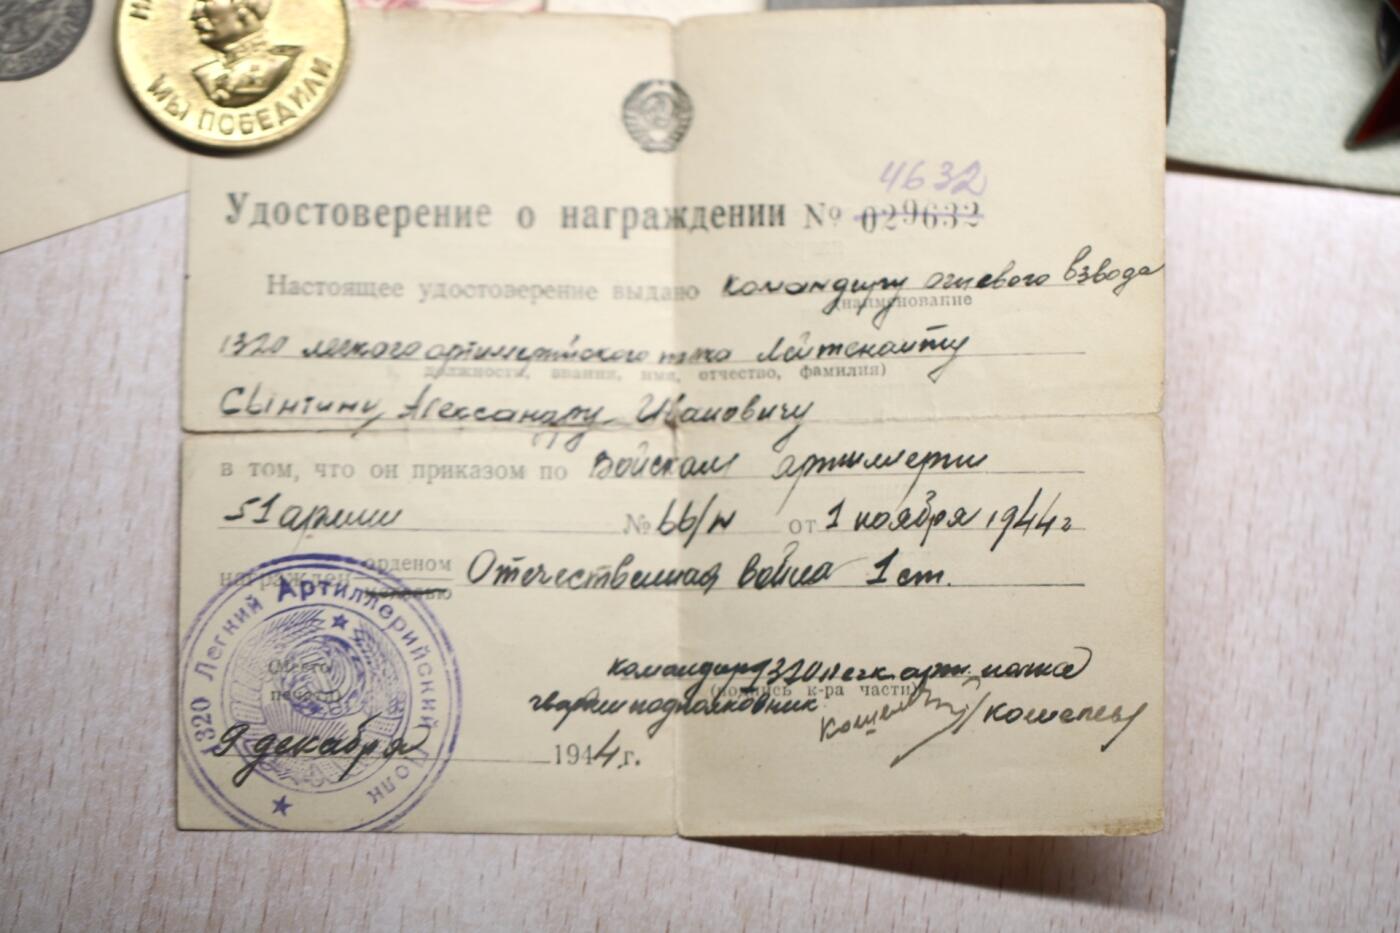 МЫ ПОБЕДИЛИ
4632
Удостоверение о награждении № 029632
Настоящее удостоверение выдано Командиру огневого взвода
(наименование
1320 легкого артиллерийского полка Лейтенанту
должности, звания, имя, отчество, фамилия)
Сынтину Александру Ивановичу
в том, что он приказом по Войскам артиллерии
51 армии № 66/н от 1 ноября 1944 г
орденом
награжден Отечественная война 1 ст.
медалью
1320 Легкий Артиллерийский Полк
(Место
печати)
командир 1320 легк. арт. полка
(подпись к-ра части)
гвардии подполковник
9 декабря 1944 г.